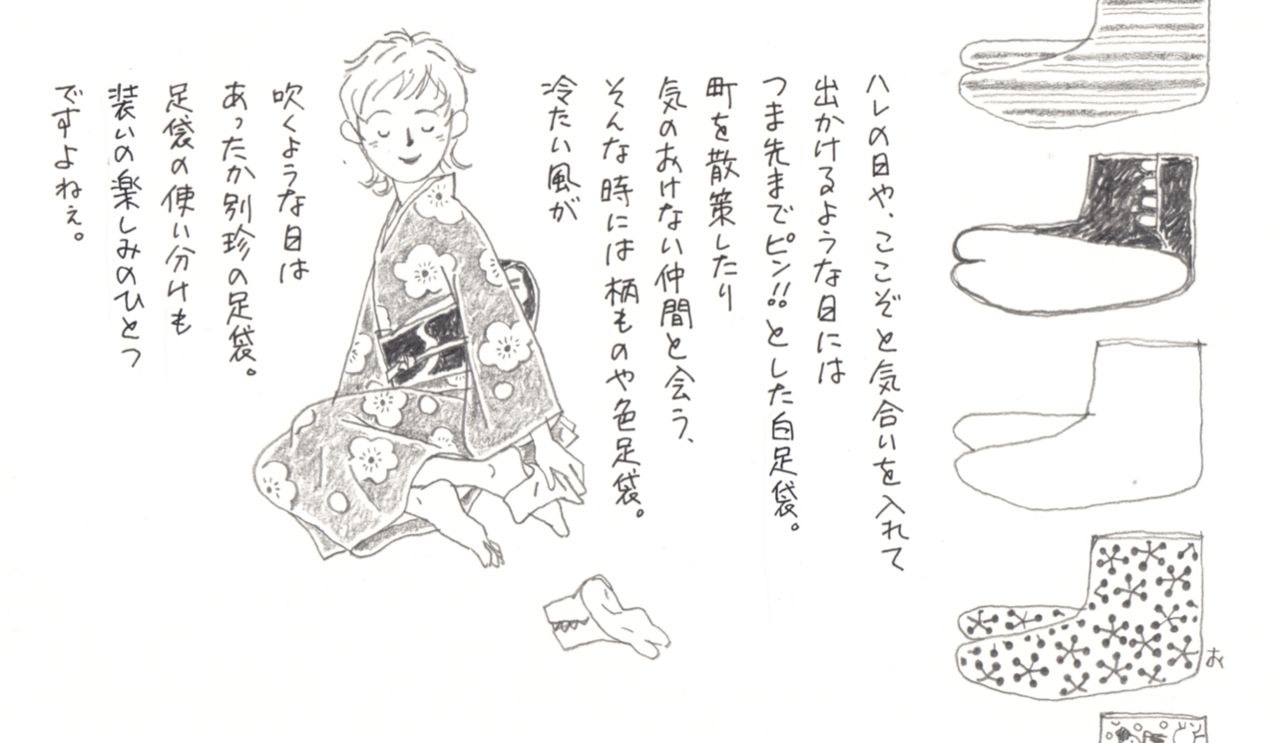 ハレの日や、ここぞと気合いを入れて
出かけるような日には
つま先までピン!!とした白足袋。
町を散策したり
気のおけない仲間と会う、
そんな時には柄ものや色足袋。
冷たい風が
吹くような日は
あったか別珍の足袋。
足袋の使い分けも
装いの楽しみのひとつ
ですよねぇ。
お